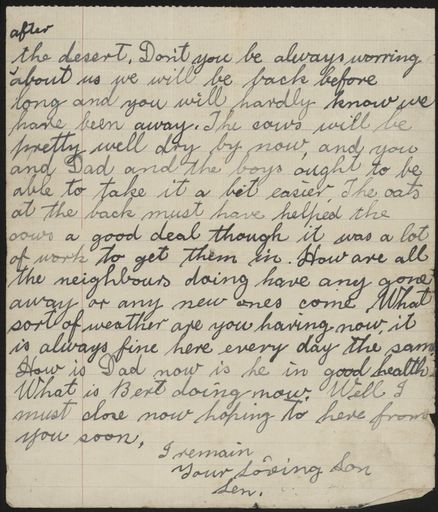 after
the desert. Don't you be always worring
about us we will be back before
long and you will hardly know we
have been away. The cows will be
pretty well dry by now, and you
and Dad and the boys ought to be
able to take it a bit easier. The oats
at the back must have helped the
cows a good deal though it was a lot
of work to get them in. How are all
the neighbours doing have any gone
away or any new ones come. What
sort of weather are you having now, it
is always fine here every day the same
How is Dad now is he in good health
What is Bert doing now. Well I
must close now hoping to here from
you soon.
I remain
Your Loving Son
Len.